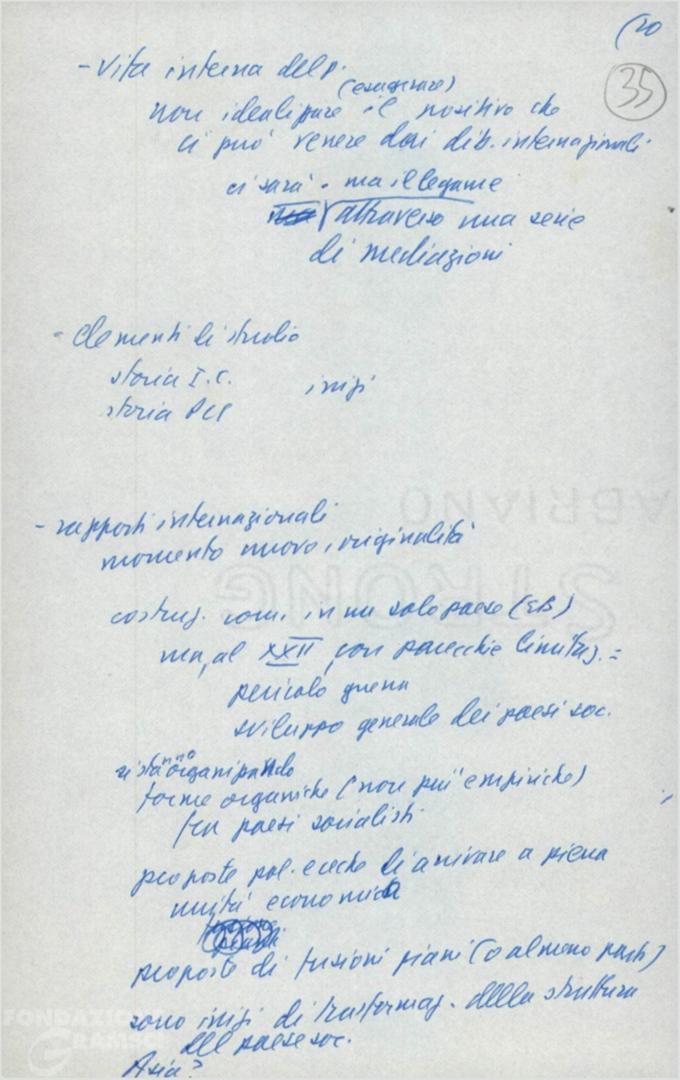 (20
35
- Vita interna del p.
(esagerare)
non idealizzare il positivo che
ci può venere dai dib. internazionali
ci sarà. ma il legame
attraverso una serie
di mediazioni
- Elementi di studio
storia I.C. inizi
storia PCI
- rapporti internazionali
momento nuovo, originalità
costruz. com. in un solo paese (
ma, al XXII, con parecchie limitaz. =
pericolo guerra
sviluppo generale dei paesi soc.
si stanno organizzando
forme organiche (non più empiriche)
fra paesi socialisti
proposte pol. ceche di arrivare a piena
unità economica
proposte di fusioni piani (o almeno parti)
sono inizi di trasformaz. della struttura
del paese soc.
Asia?
ABRIANO
STRONG
FONDAZIONE
GRAMSCI